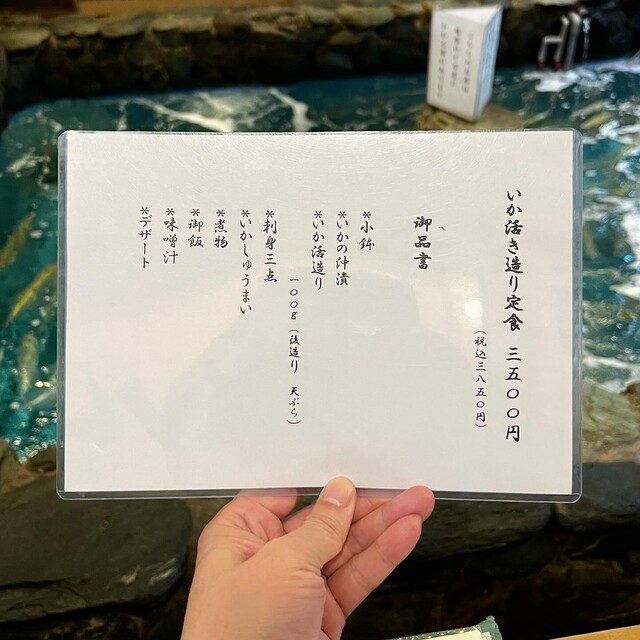 いか活き造り定食 三五〇〇円
(税込三八五〇円)
御品書
*小鉢
*いかの沖漬
*いか活造り
一〇〇g(後造り 天ぷら)
*刺身三点
*いかしゅうまい
*煮物
*御飯
*味噌汁
*デザート